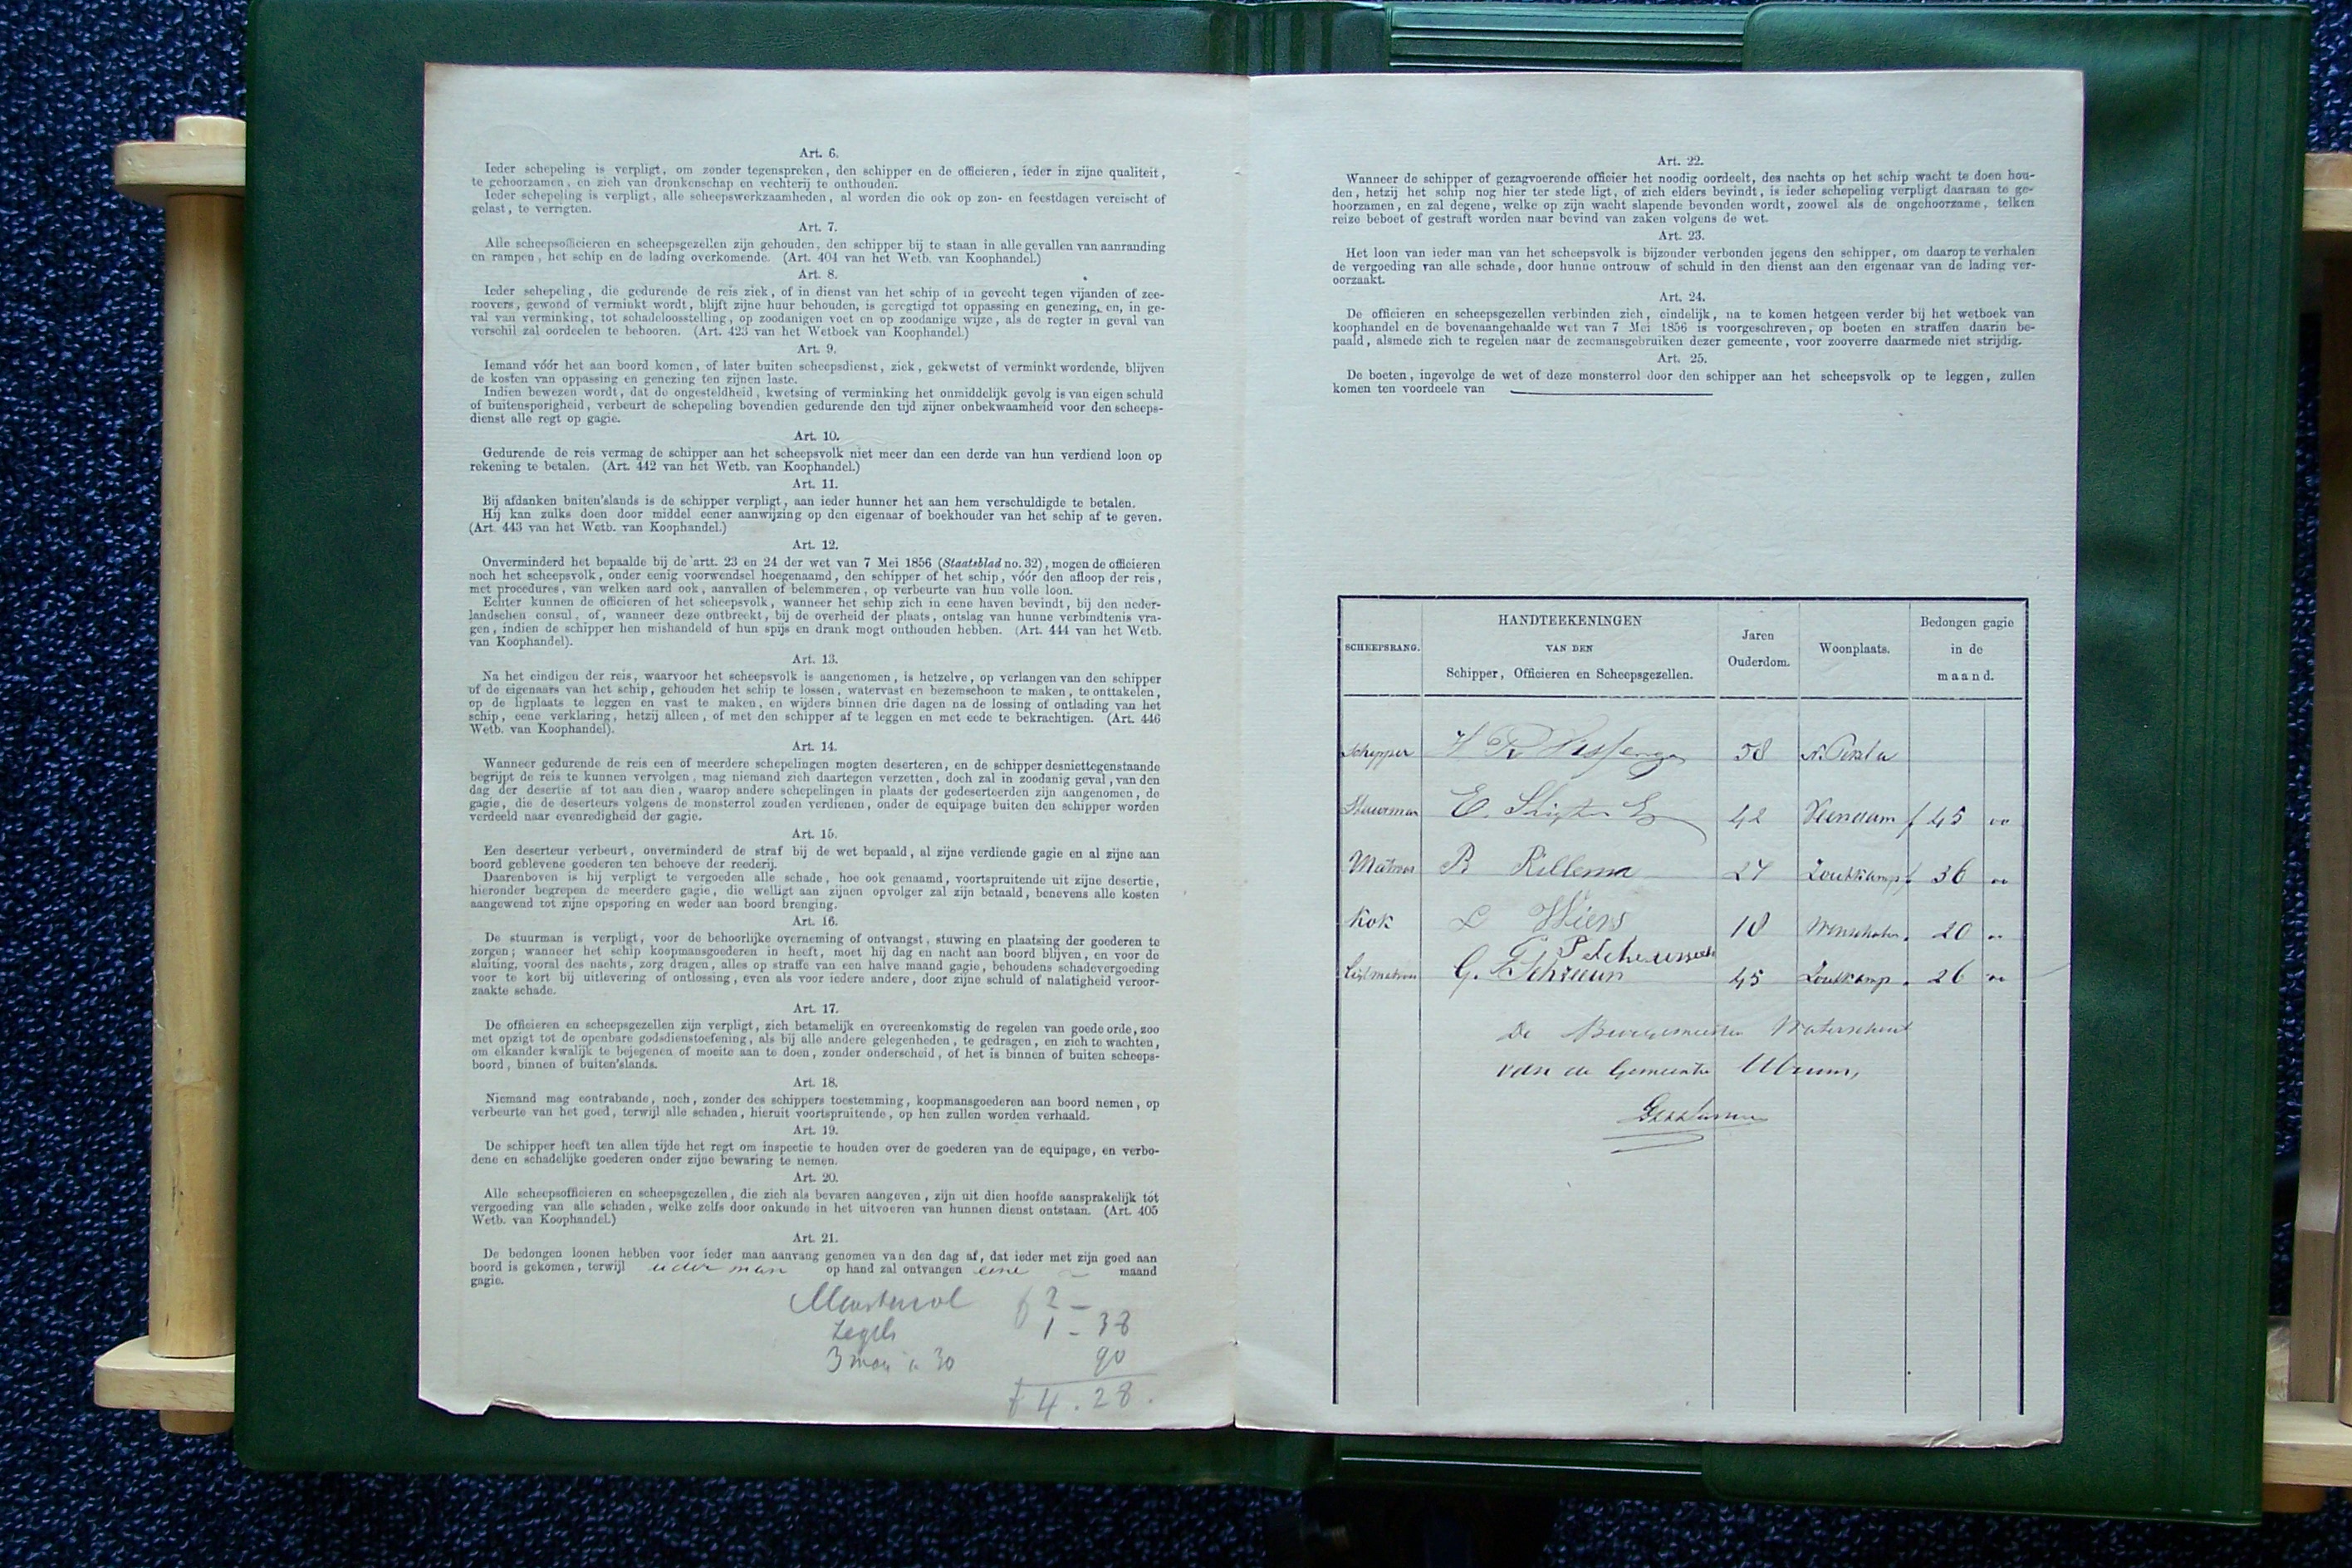 Art. 6.
Ieder schepeling is verpligt, om zonder tegenspreken, den schipper en de officieren, ieder in zijne qualiteit,
te gehoorzamen, en zich van dronkenschap en vechterij te onthouden.
Ieder schepeling is verpligt, alle scheepswerkzaamheden, al worden die ook op zon- en feestdagen vereischt of
gelast, te verrigten.
Art. 7.
Alle scheepsofficieren en scheepsgezellen zijn gehouden, den schipper bij te staan in alle gevallen van aanranding
en rampen, het schip en de lading overkomende. (Art. 404 van het Wetb. van Koophandel.)
Art. 8.
Ieder schepeling, die gedurende de reis ziek, of in dienst van het schip of in gevecht tegen vijanden of zee-
roovers, gewond of verminkt wordt, blijft zijne huur behouden, is geregtigd tot oppassing en genezing, en, in ge-
val van verminking, tot schadeloosstelling, op zoodanigen voet en op zoodanige wijze, als de regter in geval van
verschil zal oordeelen te behooren. (Art. 423 van het Wetboek van Koophandel.)
Art. 9.
Iemand vóór het aan boord komen, of later buiten scheepsdienst, ziek, gekwetst of verminkt wordende, blijven
de kosten van oppassing en genezing ten zijnen laste.
Indien bewezen wordt, dat de ongesteldheid, kwetsing of verminking het onmiddelijk gevolg is van eigen schuld
of buitensporigheid, verbeurt de schepeling bovendien gedurende den tijd zijner onbekwaamheid voor den scheeps-
dienst alle regt op gagie.
Art. 10.
Gedurende de reis vermag de schipper aan het scheepsvolk niet meer dan een derde van hun verdiend loon op
rekening te betalen. (Art. 442 van het Wetb. van Koophandel.)
Art. 11.
Bij afdanken buiten'slands is de schipper verpligt, aan ieder hunner het aan hem verschuldigde te betalen.
Hij kan zulks doen door middel eener aanwijzing op den eigenaar of boekhouder van het schip af te geven.
(Art. 443 van het Wetb. van Koophandel.)
Art. 12.
Onverminderd het bepaalde bij de artt. 23 en 24 der wet van 7 Mei 1856 (Staatsblad no. 32), mogen de officieren
noch het scheepsvolk, onder eenig voorwendsel hoegenaamd, den schipper of het schip, vóór den afloop der reis,
met procedures, van welken aard ook, aanvallen of belemmeren, op verbeurte van hun volle loon.
Echter kunnen de officieren of het scheepsvolk, wanneer het schip zich in eene haven bevindt, bij den neder-
landschen consul, of, wanneer deze ontbreekt, bij de overheid der plaats, ontslag van hunne verbindtenis vra-
gen, indien de schipper hen mishandeld of hun spijs en drank mogt onthouden hebben. (Art. 444 van het Wetb.
van Koophandel).
Art. 13.
Na het eindigen der reis, waarvoor het scheepsvolk is aangenomen, is hetzelve, op verlangen van den schipper
of de eigenaars van het schip, gehouden het schip te lossen, watervast en bezemschoon te maken, te onttakelen,
op de ligplaats te leggen en vast te maken, en wijders binnen drie dagen na de lossing of ontlading van het
schip, eene verklaring, hetzij alleen, of met den schipper af te leggen en met eede te bekrachtigen. (Art. 446
Wetb. van Koophandel).
Art. 14.
Wanneer gedurende de reis een of meerdere schepelingen mogten deserteren, en de schipper desniettegenstaande
begrijpt de reis te kunnen vervolgen, mag niemand zich daartegen verzetten, doch zal in zoodanig geval, van den
dag der desertie af tot aan dien, waarop andere schepelingen in plaats der gedeserteerden zijn aangenomen, de
gagie, die de deserteurs volgens de monsterrol zouden verdienen, onder de equipage buiten den schipper worden
verdeeld naar evenredigheid der gagie.
Art. 15.
Een deserteur verbeurt, onverminderd de straf bij de wet bepaald, al zijne verdiende gagie en al zijne aan
boord geblevene goederen ten behoeve der reederij.
Daarenboven is hij verpligt te vergoeden alle schade, hoe ook genaamd, voortspruitende uit zijne desertie,
hieronder begrepen de meerdere gagie, die welligt aan zijnen opvolger zal zijn betaald, benevens alle kosten
aangewend tot zijne opsporing en weder aan boord brenging.
Art. 16.
De stuurman is verpligt, voor de behoorlijke overneming of ontvangst, stuwing en plaatsing der goederen te
zorgen; wanneer het schip koopmansgoederen in heeft, moet hij dag en nacht aan boord blijven, en voor de
sluiting, vooral des nachts, zorg dragen, alles op straffe van een halve maand gagie, behoudens schadevergoeding
voor te kort bij uitlevering of ontlossing, even als voor iedere andere, door zijne schuld of nalatigheid veroor-
zaakte schade.
Art. 17.
De officieren en scheepsgezellen zijn verpligt, zich betamelijk en overeenkomstig de regelen van goede orde, zoo
met opzigt tot de openbare godsdienstoefening, als bij alle andere gelegenheden, te gedragen, en zich te wachten,
om elkander kwalijk te bejegenen of moeite aan te doen, zonder onderscheid, of het is binnen of buiten scheeps-
boord, binnen of buiten'slands.
Art. 18.
Niemand mag contrabande, noch, zonder des schippers toestemming, koopmansgoederen aan boord nemen, op
verbeurte van het goed, terwijl alle schaden, hieruit voortspruitende, op hen zullen worden verhaald.
Art. 19.
De schipper heeft ten allen tijde het regt om inspectie te houden over de goederen van de equipage, en verbo-
dene en schadelijke goederen onder zijne bewaring te nemen.
Art. 20.
Alle scheepsofficieren en scheepsgezellen, die zich als bevaren aangeven, zijn uit dien hoofde aansprakelijk tot
vergoeding van alle schaden, welke zelfs door onkunde in het uitvoeren van hunnen dienst ontstaan. (Art. 405
Wetb. van Koophandel.)
Art. 21.
De bedongen loonen hebben voor ieder man aanvang genomen van den dag af, dat ieder met zijn goed aan
boord is gekomen, terwijl ieder man op hand zal ontvangen eene maand
gagie.
Monsterrol f 2 –
Zegels 1 - 38
3 man a 30 90
f 4.28.
Art. 22.
Wanneer de schipper of gezagvoerende officier het noodig oordeelt, des nachts op het schip wacht te doen hou-
den, hetzij het schip nog hier ter stede ligt, of zich elders bevindt, is ieder schepeling verpligt daaraan te ge-
hoorzamen, en zal degene, welke op zijn wacht slapende bevonden wordt, zoowel als de ongehoorzame, telken
reize beboet of gestraft worden naar bevind van zaken volgens de wet.
Art. 23.
Het loon van ieder man van het scheepsvolk is bijzonder verbonden jegens den schipper, om daarop te verhalen
de vergoeding van alle schade, door hunne ontrouw of schuld in den dienst aan den eigenaar van de lading ver-
oorzaakt.
Art. 24.
De officieren en scheepsgezellen verbinden zich, eindelijk, na te komen hetgeen verder bij het wetboek van
koophandel en de bovenaangehaalde wet van 7 Mei 1856 is voorgeschreven, op boeten en straffen daarin be-
paald, alsmede zich te regelen naar de zeemansgebruiken dezer gemeente, voor zooverre daarmede niet strijdig.
Art. 25.
De boeten, ingevolge de wet of deze monsterrol door den schipper aan het scheepsvolk op te leggen, zullen
komen ten voordeele van
SCHEEPSRANG. HANDTEEKENINGEN VAN DEN Schipper, Officieren en Scheepsgezellen. Jaren Ouderdom. Woonplaats. Bedongen gagie in de maand.
Schipper H R 58 N. Pekela
Stuurman E. 42 Veendam f 45 00
Matroos B Rillema 27 Zoutkamp f 36 00
Kok L Wiers 18 Winschoten 20 00
Ligtmatroos G. 45 Zoutkamp 26 00
De Burgemeester Waterschout
van de Gemeente Ulrum,